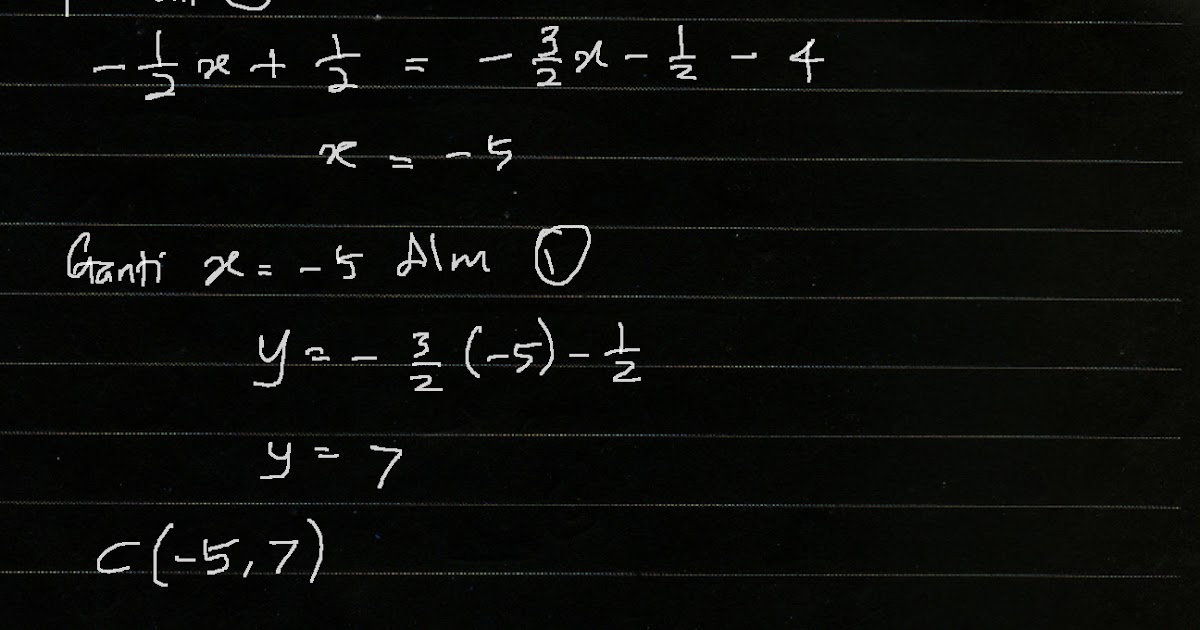 -1/2 x + 1/2 = -3/2 x - 1/2 - 4
x = -5
Ganti x = -5 dlm ①
y = -3/2 (-5) - 1/2
y = 7
C(-5, 7)